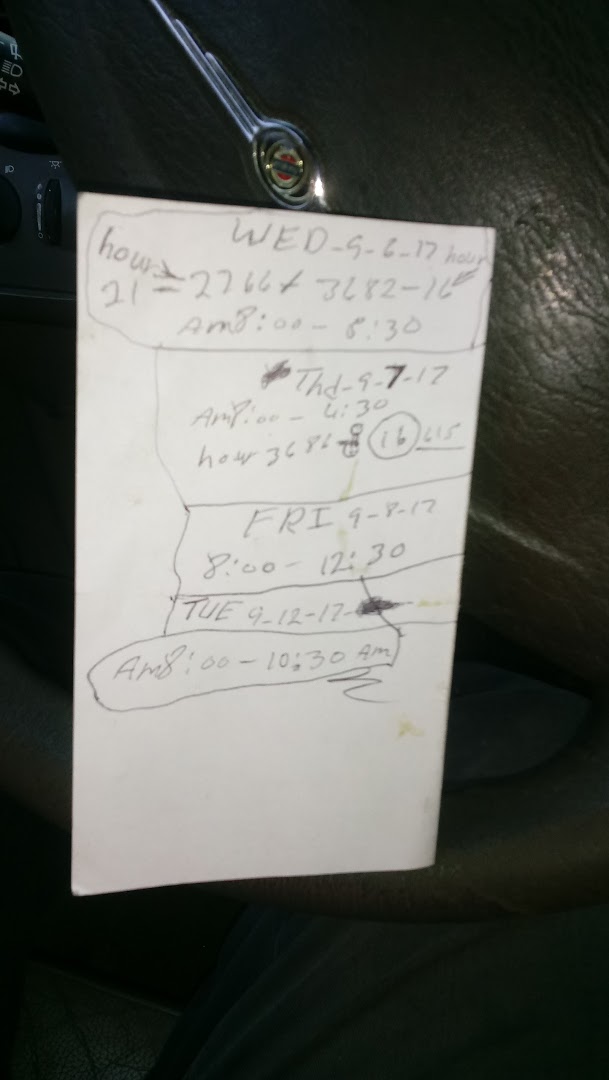 WED-9-6-17 hour
hour
21 = 2766 + 3682-16
Am8:00 - 8:30
Thd-9-7-17
Am8:00 - 4:30
hour 3686 16
FRI 9-8-17
8:00 - 12:30
TUE 9-12-17-
Am8:00-10:30 Am